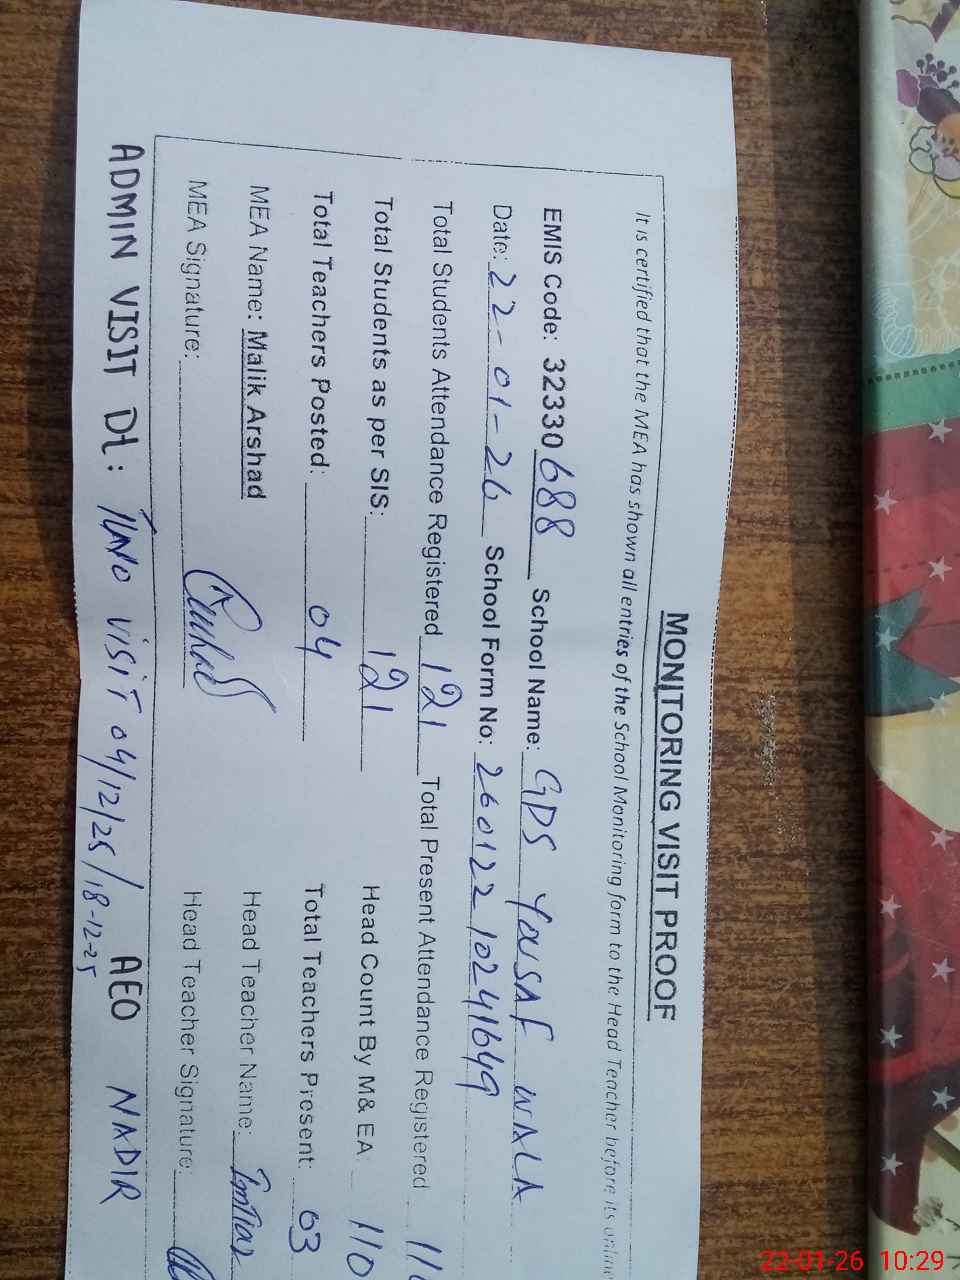 MONITORING VISIT PROOF
It is certified that the MEA has shown all entries of the School Monitoring form to the Head Teacher before its
EMIS Code: 32330688 School Name: GPS YOUSAF WALA
Date: 22-01-26 School Form No: 26012210241649
Total Students Attendance Registered 121 Total Present Attendance Registered
Total Students as per SIS: 121 Head Count By M& EA 110
Total Teachers Posted: 04 Total Teachers Present: 03
MEA Name: Malik Arshad Head Teacher Name: Imtiaz
MEA Signature: Head Teacher Signature:
ADMIN VISIT Dt: VISIT 04/12/25/18-12-25 AEO NADIR
22-01-26 10:29